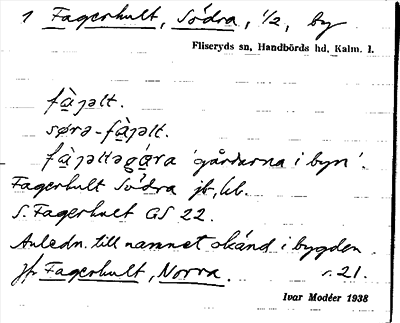 1 Fagerhult, Södra, 1/2, by
Fliseryds sn, Handbörds hd, Kalm. l.
fàjəlt.
sørə-fàjəlt.
fàjəltəgára 'gårdarna i byn'.
Fagerhult Södra jb, kb.
S. Fagerhult GS 22.
Anledn. till namnet okänd i bygden.
Jfr Fagerhult, Norra. r. 21.
Ivar Modéer 1938